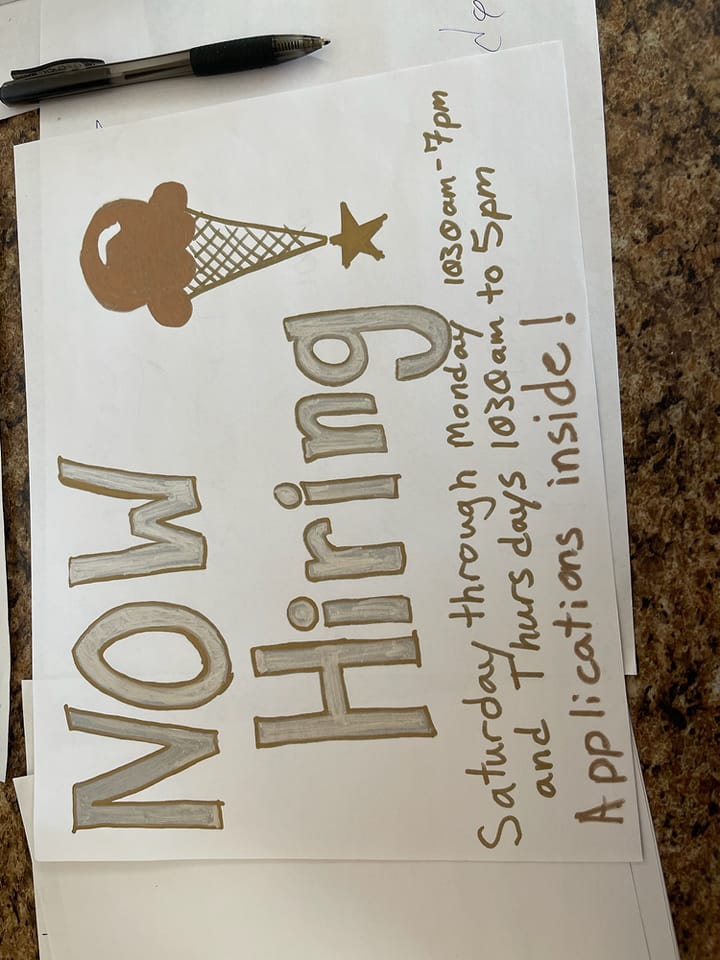 NOW
Hiring
Saturday through Monday 1030am-7pm
and Thursdays 1030am to 5pm
Applications inside!